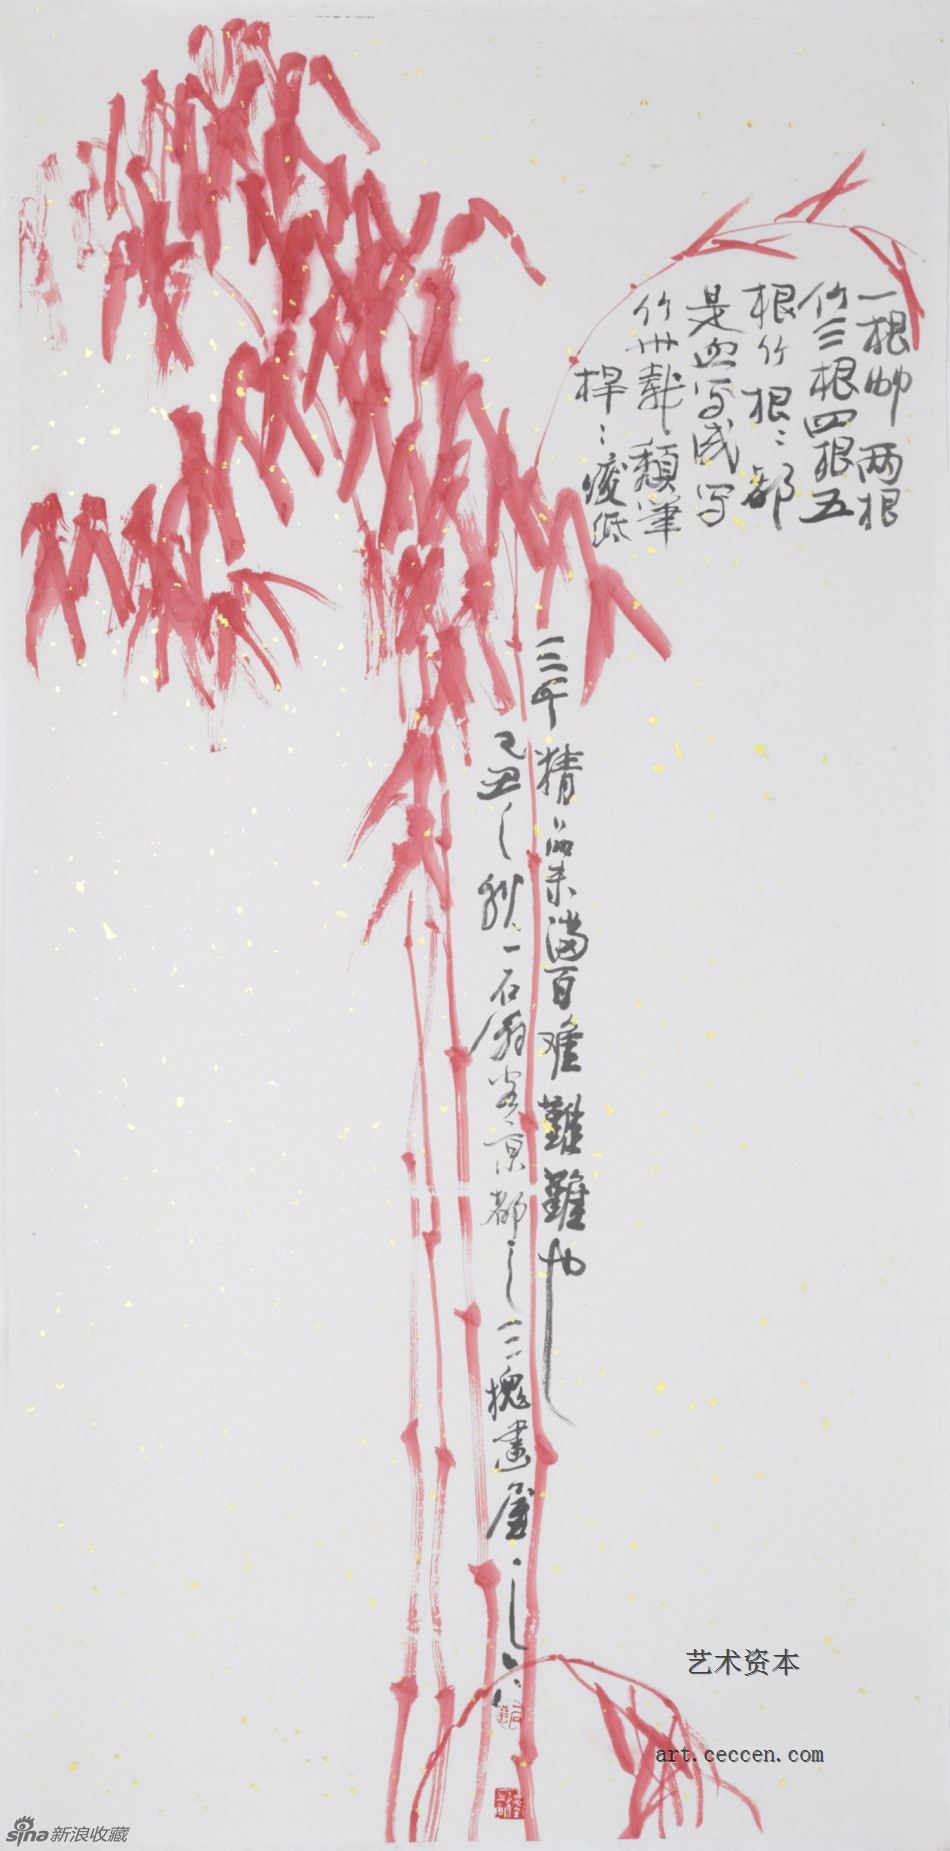 一根两根
竹三根四根五
根竹根〻都
是血写成写
竹卅载颓筆
桿〻廢纸
三千精品未满百难難難也
己丑之秋一石翁於京都之三槐畫屋之
艺术资本
art.ceccen.com
sina新浪收藏